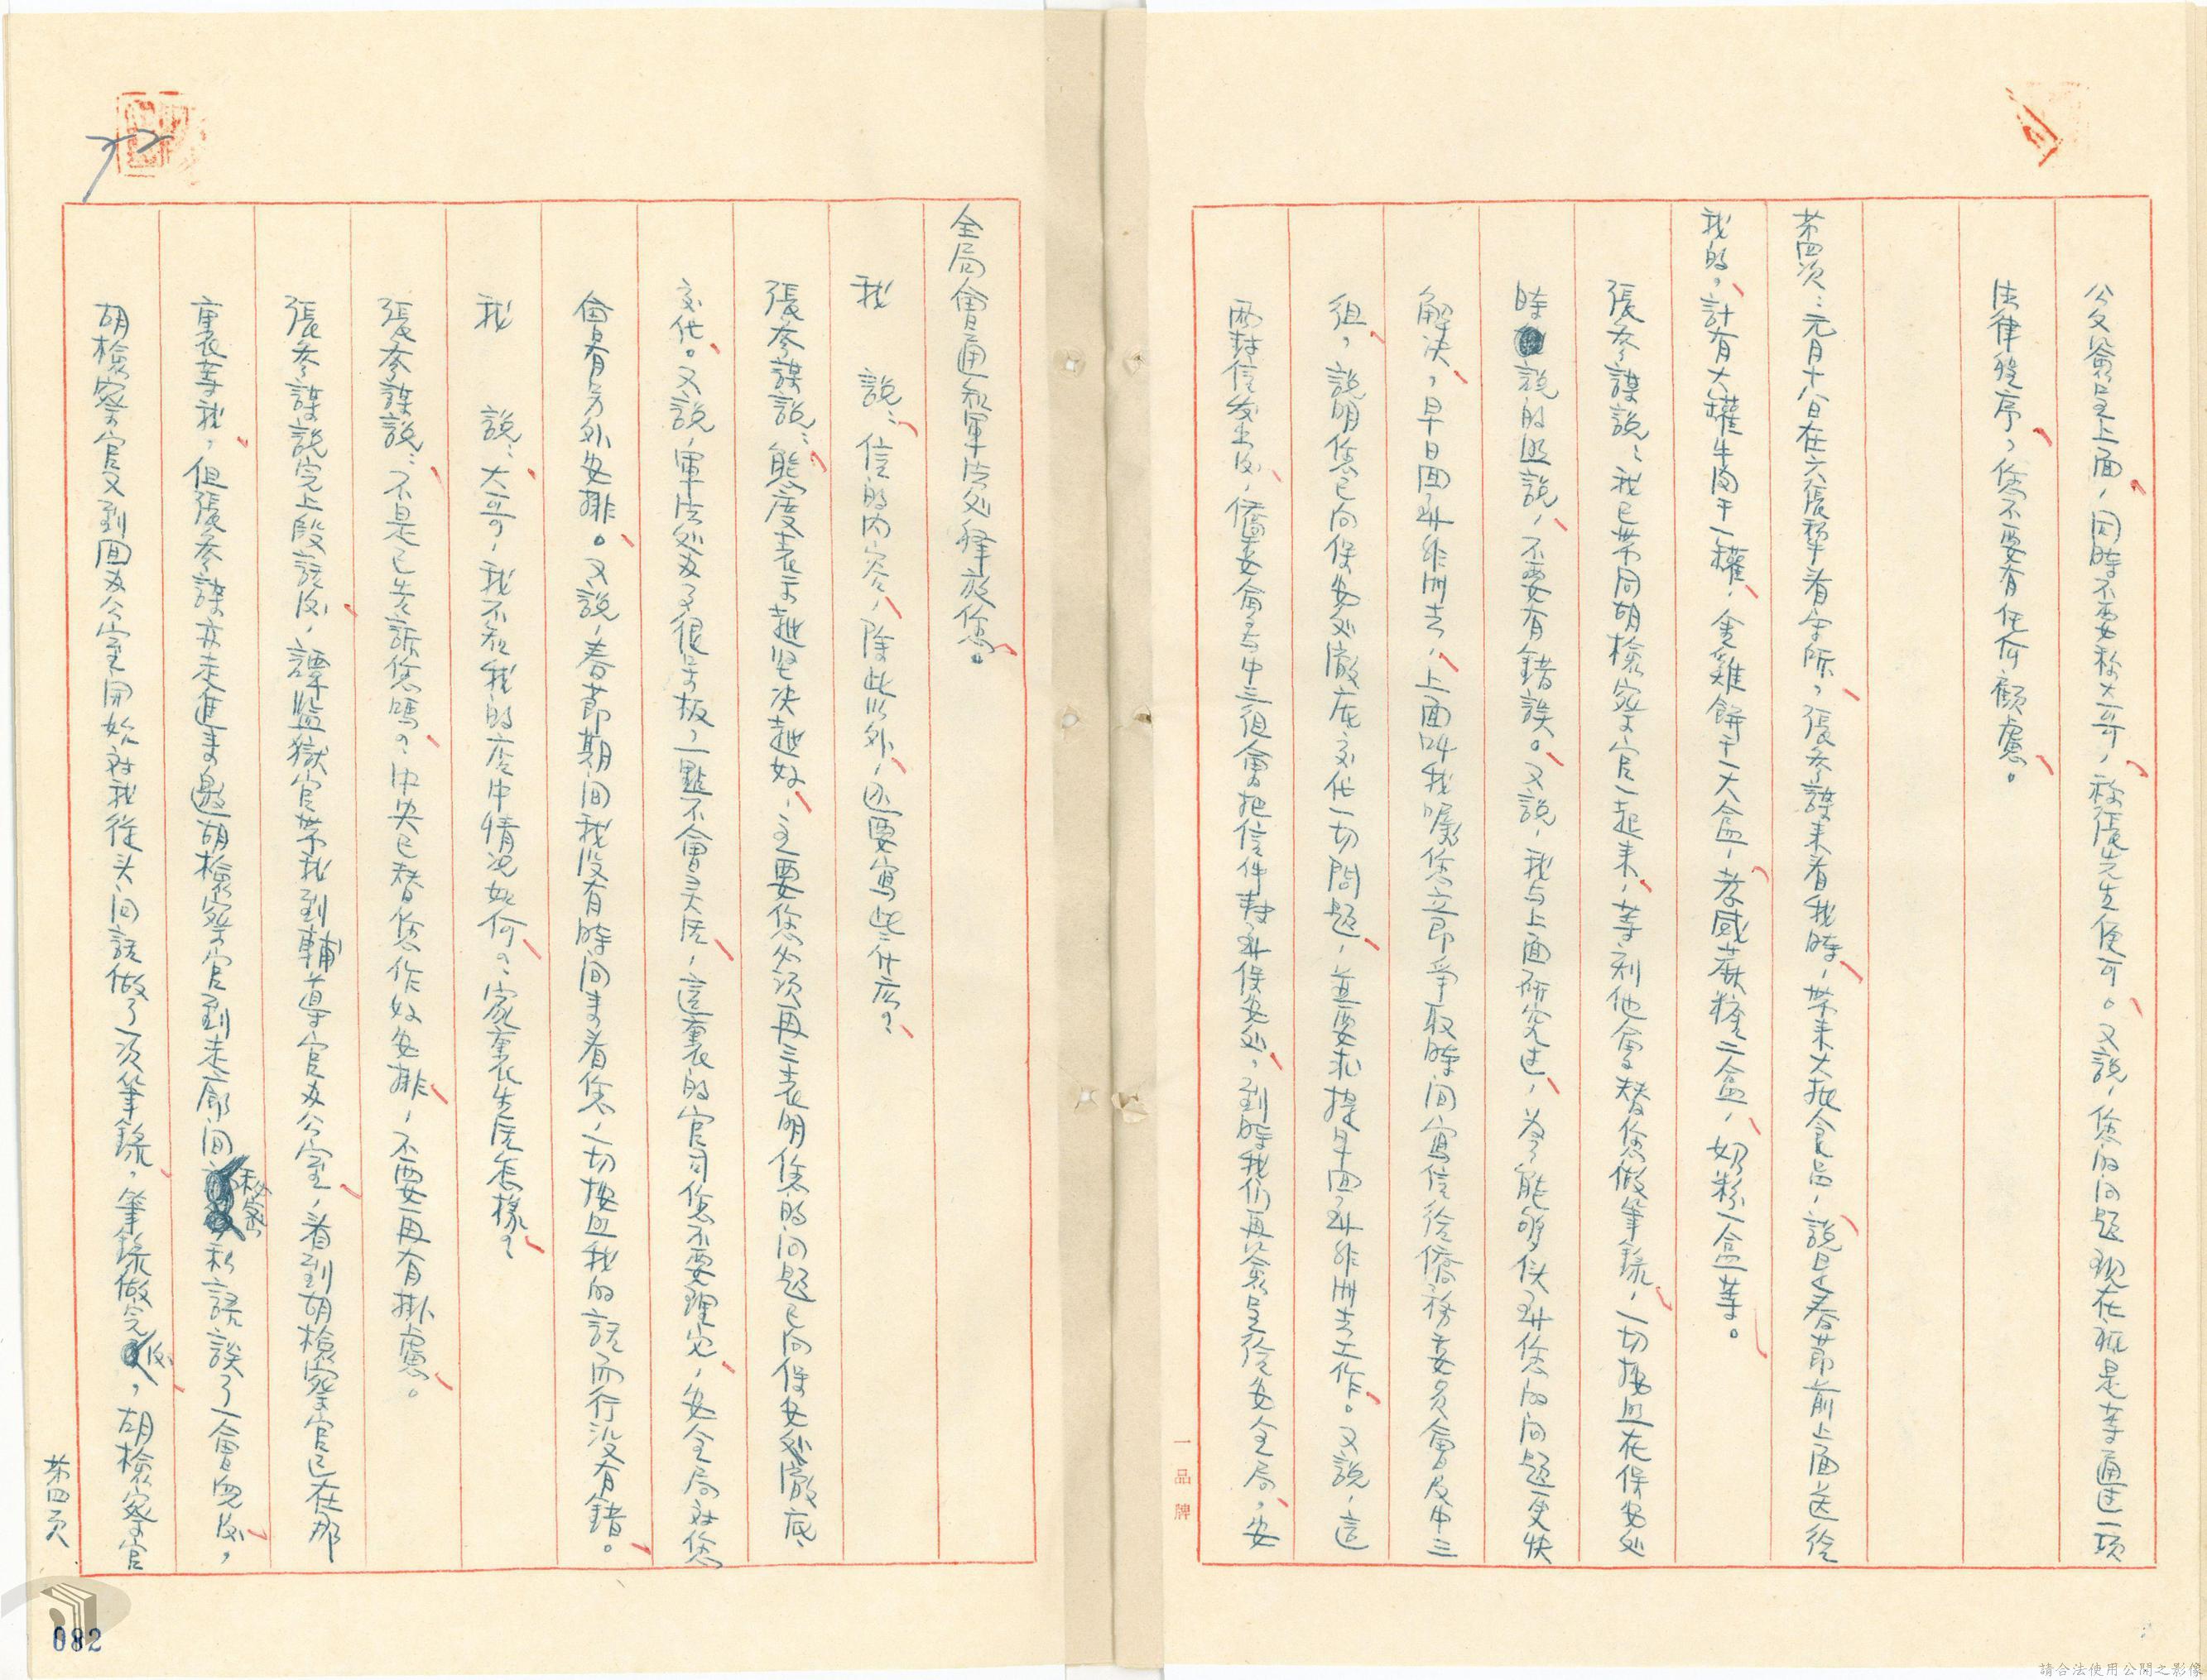 公文簽呈上面，同時不要称大哥，称張先生便可。又說，您的问题现在祇是等通过一项
法律程序，您不要有任何顧慮。
苐四次：元月十八日在六張犁看守所，張参謀来看我時，带来大批食品，說是春節前上面送给
我的，計有大罐牛肉干一罐，金雞餅干一大盒，孝感蔴糖二盒，奶粉一盒等。
張参謀說：我已带同胡檢察官一起来，等刻他會替您做筆錄，一切按照在保安处
時說的照說，不要有錯誤。又說，我与上面研究过，为了能够使到您的问题更快
解决，早日回到非洲去，上面叫我囑您立即爭取時间寫信给僑務委員會及中三
组，說明您已向保安处徹底交代一切問题，並要求提早回到非洲去工作。又說，這
两封信发出後，僑委會与中三组會把信件轉到保安处，到時我们再簽呈给安全局，安
一品牌
全局會通知軍法处释放您。
我　說：信的内容，除此以外，还要寫些什庅？
張参謀說：態度表示越坚决越好，主要您必须再三表明您的问题已向保安处徹底
交代。又說，軍法处为了很呆板，一點不會灵活，這裏的官司您不要理它，安全局对您
會有另外安排。又說，春節期间我没有時间来看您，一切按照我的話而行没有錯。
我　說：大哥，我不知我的店中情况如何？家裏生活怎樣？
張参謀說：不是已告訴您嗎？中央已替您作好安排，不要再有掛慮。
張参謀說完上段話後，譚監獄官带我到輔導官办公室，看到胡檢察官已在那
裏等我，但張参謀亦走進来邀胡檢察官到走廊间秘密私語談了一會兒後，
胡檢察官又到回办公室開始对我從头问話做了一次筆錄，筆錄做完後，胡檢察官
苐四页
082
請合法使用公開之影像